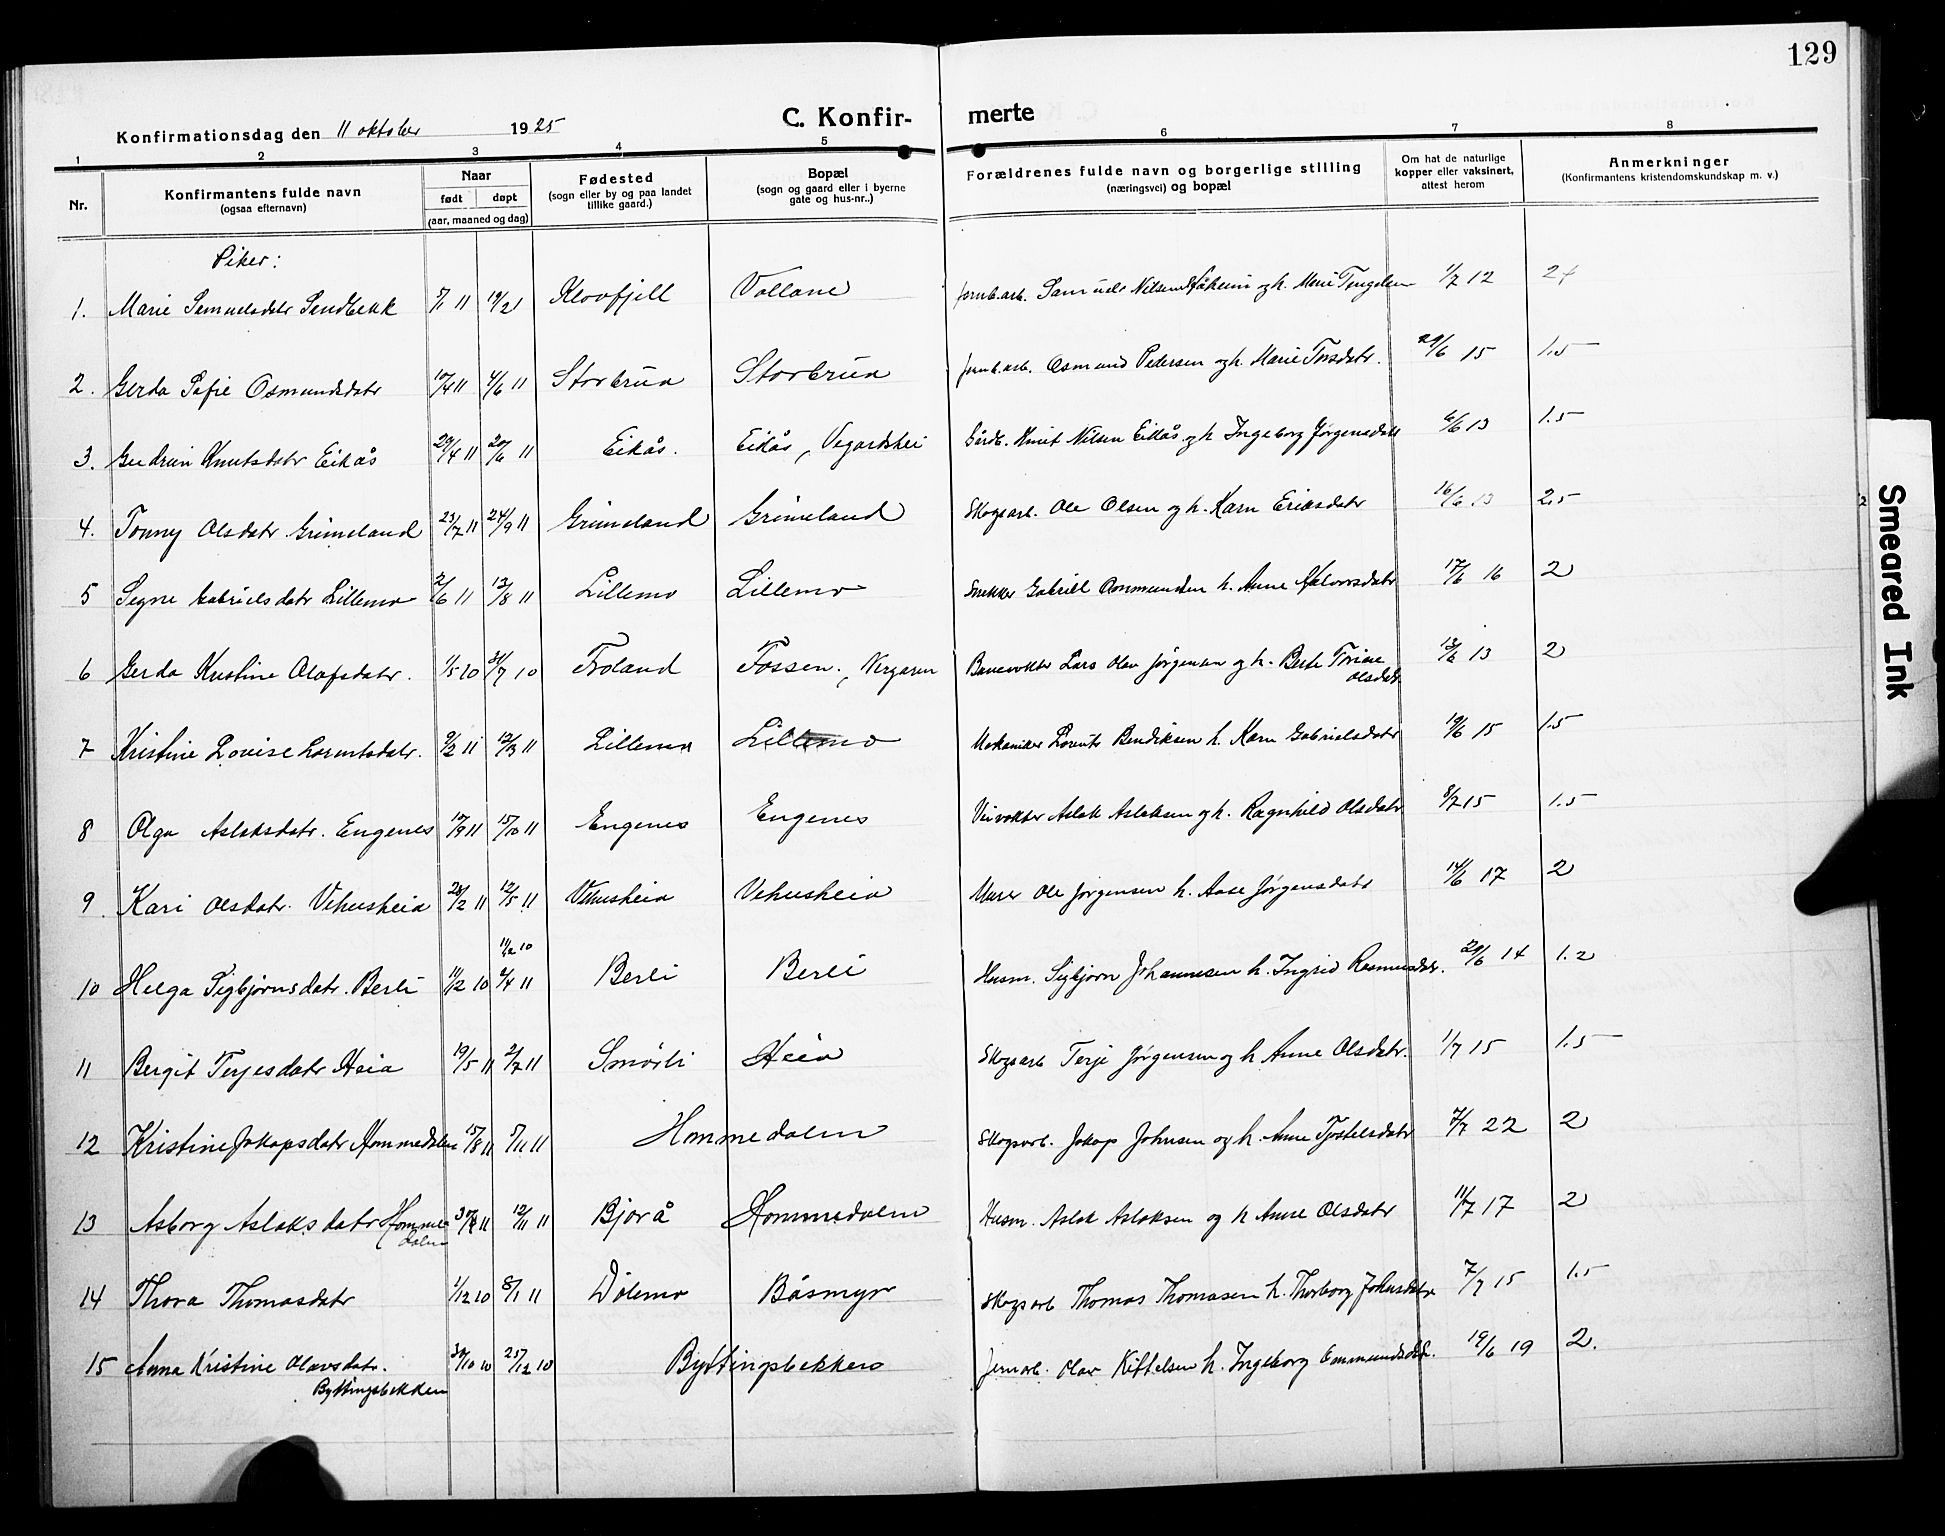 129
C. Konfir- merte
Konfirmationsdag den 11 oktober 1925
1 2 3 4 5 6 7 8
Nr.
Konfirmantens fulde navn
(ogsaa efternavn)
Naar
født døpt
(aar, maaned og dag)
Fødested
(sogn eller by og paa landet
tillike gaard.)
Bopæl
(sogn og gaard eller i byerne
gate og hus-nr..)
Forældrenes fulde navn og borgerlige stilling
(næringsvei) og bopæl
Om hat de naturlige
kopper eller vaksinert,
attest herom
Anmerkninger
(Konfirmantens kristendomskundskap m. v.)
Piker:
1. Marie Samuelsdatr Sandbekk 5/1 11 19/2 Klovfjell Vollane Jernb.arb. Samuel Nilsen og h. 1/7 12
2. Gerda Sofie Osmundsdatr 10/4 11 4/6 11 Storbrua Storbrua Jernb.arb. Osmund Pedersen og h. Marie Torsdatr. 29/6 15 1.5
3. Gudrun Knutsdatr Eikås 29/4 11 20/6 11 Eikås. Eikås, Vegardshei Gårdb. Knut Nilsen Eikås og h Ingeborg Jørgensdatr 6/6 13 1.5
4. Tonny Olsdatr. Grimeland 23/7 11 24/9 11 Grimeland Grimeland Skogsarb. Ole Olsen og h. Karn Eriksdatr 16/6 13 2.5
5 Segne Gabrielsdatr Lillemo 2/6 11 13/8 11 Lillemo Lillemo Snekker Gabriell h. Anne Halvorsdatr 17/6 16 2
6 Gerda Kristine Olafsdatr. 1/5 10 31/7 10 Froland Fossen, Banevokter Lars Olav Jørgensen og h. Berte Torine
Olsdatr 13/6 13 2
7 Kristine Lovise Lorentsdatr. 9/2 11 12/3 11 Lillemo Lillemo Mekaniker Lorents Bendiksen h. Karn Gabrielsdatr 19/6 15 1.5
8 Olga Aslaksdatr. Engenes 10/9 11 15/10 11 Engenes Engenes Veivokter Aslak Aslaksen og h. Ragnhild Olsdatr 8/7 15 1.5
9. Kari Olsdatr. Vehusheia 28/2 11 12/5 11 Vehusheia Vehusheia Murer Ole Jørgensen h. Aase Jørgensdatr 14/6 17 2
11/2 10
10 Helga Sigbjørnsdatr. Berli 10 2/4 11 Berli Berli Husm. Sigbjørn Johannesen h. Ingrid Rasmusdatr. 29/6 14 1.2
11 Bergit Terjesdatr Heia 19/5 11 2/7 11 Smørli Heia Skogsarb Terje Jørgensen og h Anne Olsdatr. 1/7 15 1.5
12 Kristine Jakopsdatr Hommedalen 15/8 11 5/11 11 Hommedalen Skogsarb. Jakop Johnsen og h. Anne Tjostelsdatr 7/7 22 2
13 Asborg Aslaksdatr Homme-
dalen 11 12/11 11 Bjorå Hommedalen Husm. Aslak Aslaksen og h Anne Olsdatr 11/7 17 2
14 Thora Thomasdatr 1/12 10 8/1 11 Dölemo Båsmyr Skogsarb Thomas Thomasen h. Thorborg Johnsdatr 7/7 15 1.5
15 Anna Kristine Olavsdatr.
Byttingsbekken 30/10 10 25/12 10 Byttingsbekken Jernarb. Olav Kittelsen h. Ingeborg 19/6 19 2.
Smeared Ink